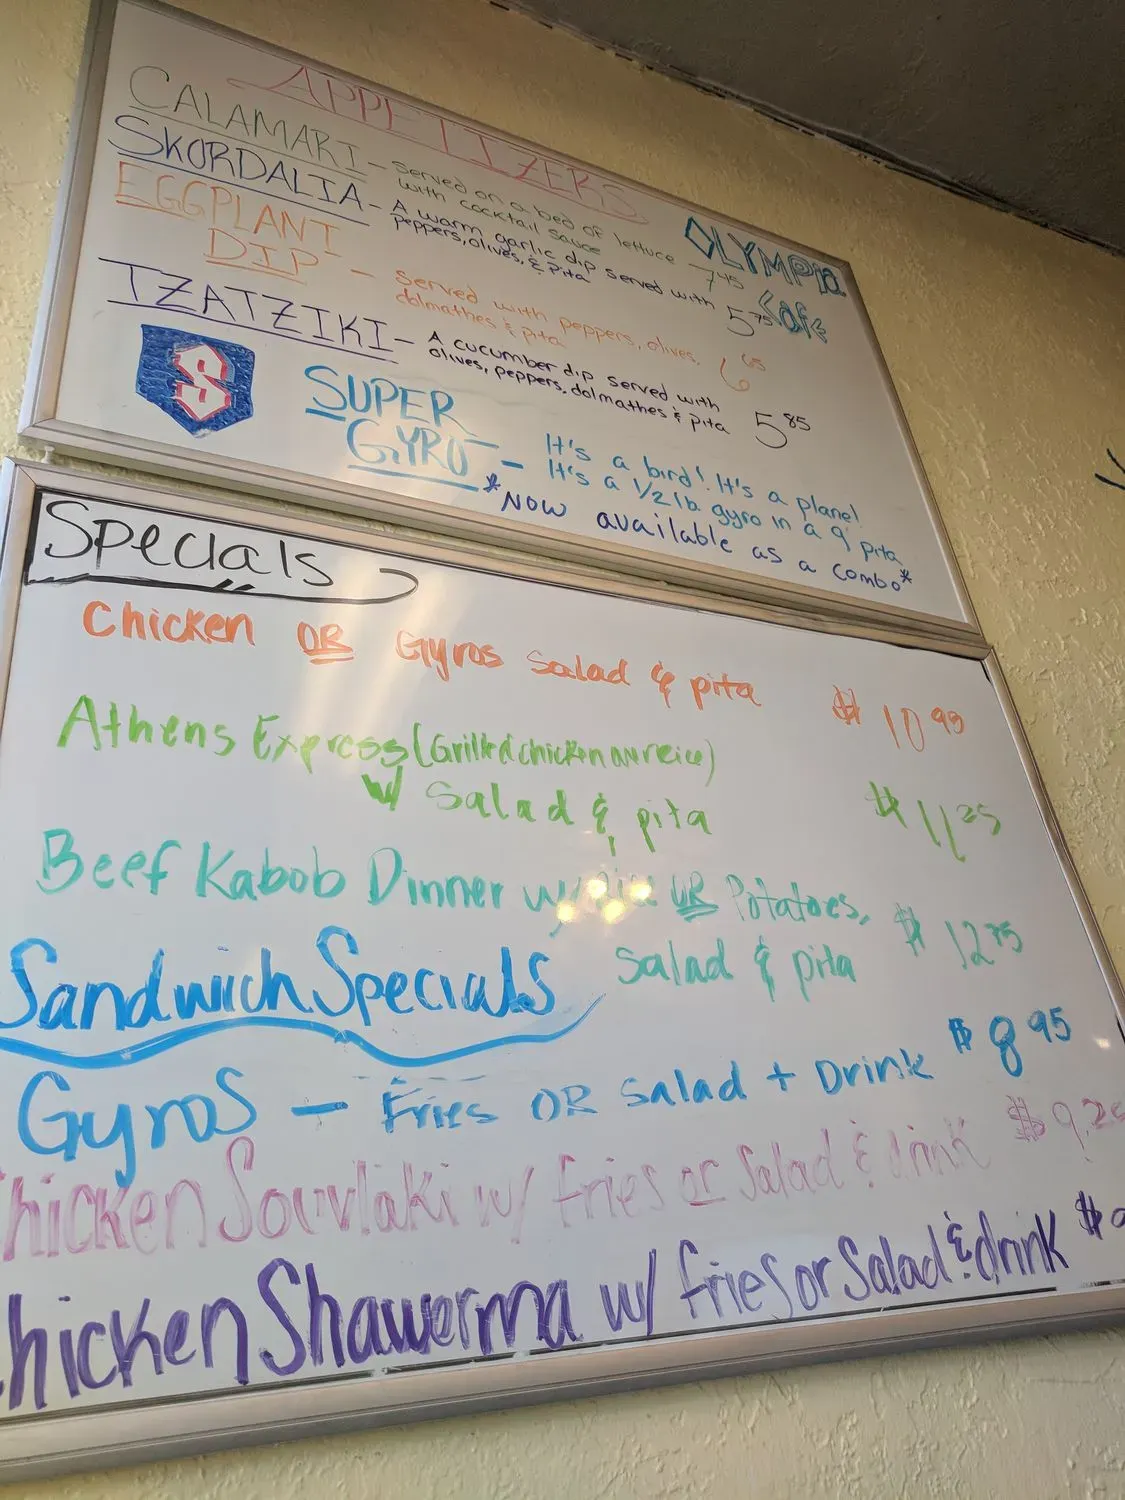 APPETIZERS
OLYMPIA
Cafe
CALAMARI - Served on a bed of lettuce 7 45
with cocktail sauce
SKORDALIA - A warm garlic dip served with 5 75
peppers, olives, & pita
EGGPLANT
DIP - Served with peppers, olives, 6 65
dolmathes & pita
TZATZIKI - A cucumber dip served with 5 85
olives, peppers, dolmathes & pita
S
SUPER
GYRO - It's a bird! It's a plane!
It's a 1/2 lb. gyro in a 9" pita
*NOW available as a combo*
Specials
Chicken OR Gyros Salad & pita $10 99
Athens Express (Grilled chicken over rice)
w/ Salad & pita $11 25
Beef Kabob Dinner w/ Rice OR Potatoes, $12 75
Salad & pita
Sandwich Specials
Gyros - Fries OR Salad + Drink $8 95
hicken Souvlaki w/ fries or Salad & drink $9.25
hicken Shawerma w/ fries or Salad & drink $